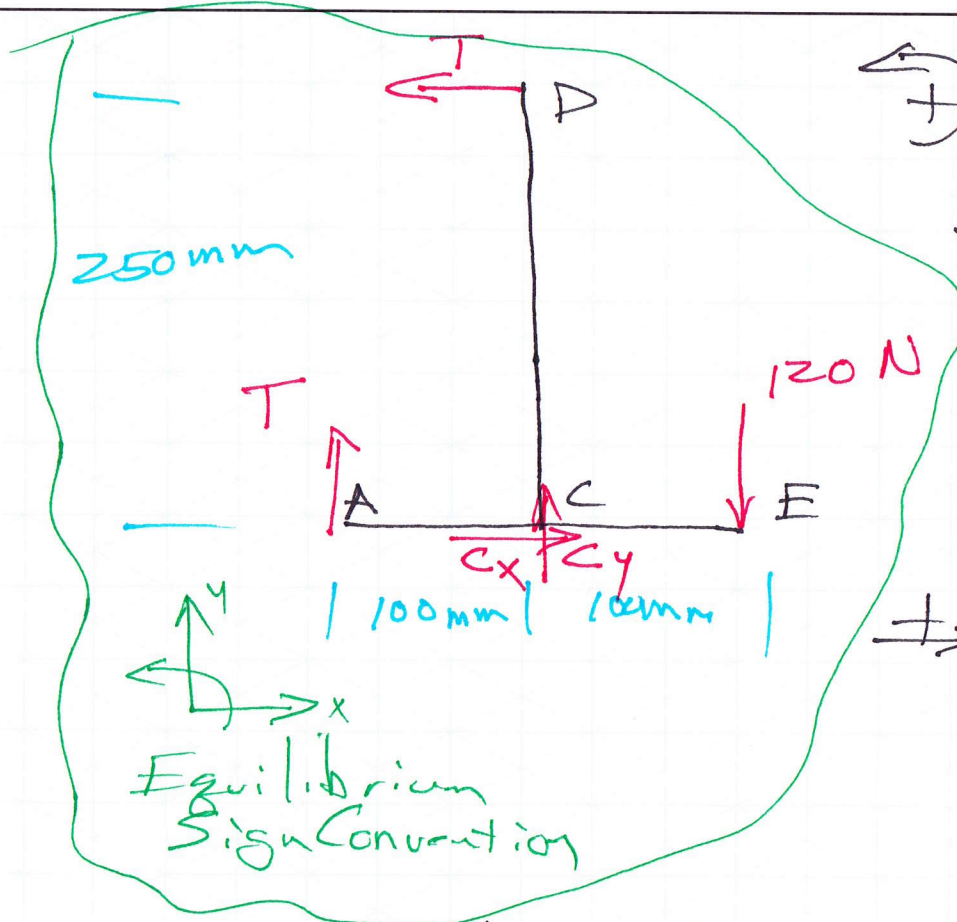 T
D
+
250mm
120 N
T
A
C
E
Cx
Cy
100mm
100mm
+
y
x
Equilibrium
Sign Convention